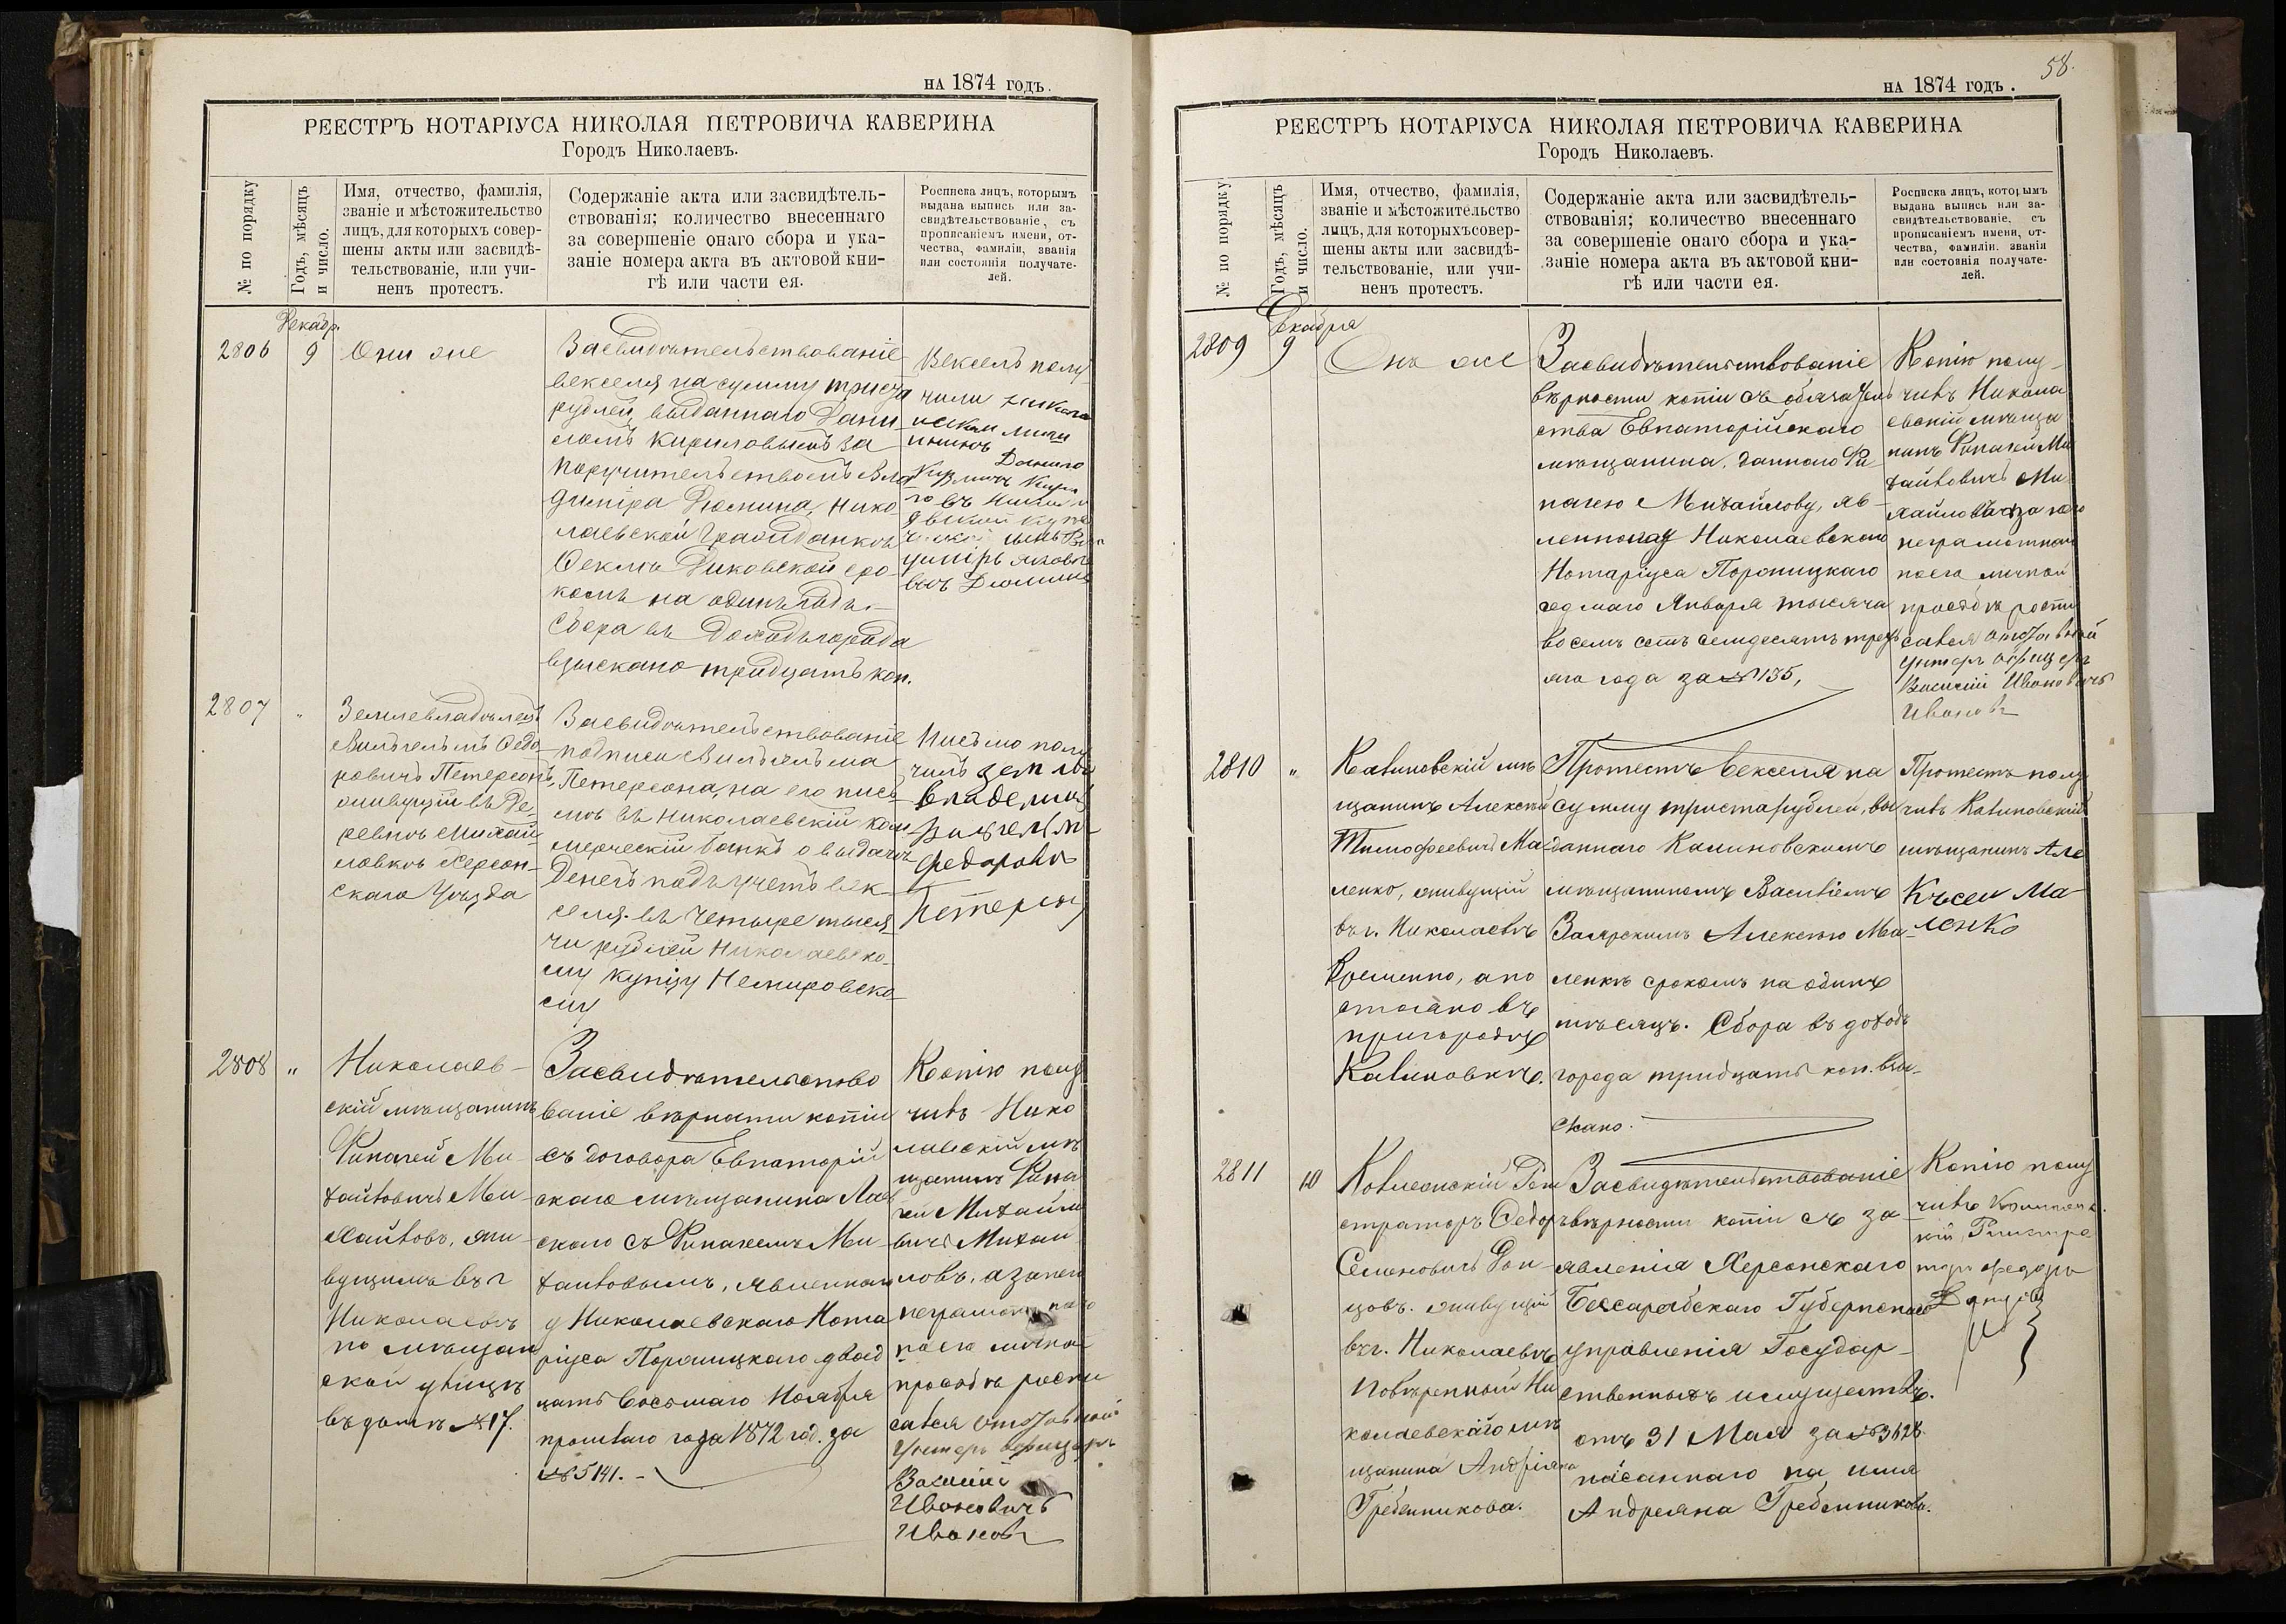 НА 1874 ГОДЪ.
РЕЕСТРЪ НОТАРІУСА НИКОЛАЯ ПЕТРОВИЧА КАВЕРИНА
Городъ Николаевъ.
№ по порядку
Годъ, мѣсяцъ
и число.
Имя, отчество, фамилія,
званіе и мѣстожительство
лицъ, для которыхъ совер-
шены акты или засвидѣ-
тельствованіе, или учи-
ненъ протестъ.
Содержаніе акта или засвидѣтель-
ствованія; количество внесеннаго
за совершеніе онаго сбора и ука-
заніе номера акта въ актовой кни-
гѣ или части ея.
Росписка лицъ, которымъ
выдана выпись или за-
свидѣтельствованіе, съ
прописаніемъ имени, от-
чества, фамиліи, званія
или состоянія получате-
лей.
Декабр.
2806
9
Они же
Засвидѣтельствованіе
векселя на сумму триста
рублей, выданнаго Дани
ломъ Кириловымъ за
поручительствомъ Вла
диміра Дюмина, Нико-
лаевской гражданкѣ
Диковской сро-
комъ на одинъ годъ.
Сбора въ доходъ города
взыскано тридцать коп.
Вексель полу-
чили
Данило
2807
"
Землевладѣлецъ
Вильгельмъ Федо-
ровичъ Петерсонъ,
живущій въ де-
ревнѣ Михай-
ловкѣ Херсон-
скаго Уѣзда
Засвидѣтельствованіе
подписи Вильгельма
Петерсона, на его пись-
мѣ въ Николаевскій ком
мерческій банкъ о выдачѣ
денегъ подъ учетъ век-
селя въ четыре тыся-
чи рублей Николаевско-
му купцу Немировско-
му
Письмо полу
чилъ земле
владелецъ
Вильгельм
Федоровъ
Петерсон
2808
"
Николаев-
скій мѣщанинъ
Финагей Ми-
хайловичъ Ми-
хайловъ, жи-
вущимъ въ г
Николаевѣ
по мѣщан
ской улицѣ
въ домѣ №17.
Засвидѣтельство
ваніе вѣрности копіи
съ договора Евпаторій
скаго мѣщанина
скаго съ Финагеемъ Ми-
хайловымъ, явленнаго
у Николаевскаго Нота
ріуса Порошицкаго двад
цать восьмаго Ноября
прошлаго года 1872 год. за
№5141.-
Копію полу
чилъ Нико
лаевскій мѣ
щанинъ Фина
гей Михайло
вичъ Михай
ловъ, а за него
неграмотнаго
по его личной
просьбѣ роспи
сался отставной
унтеръ офицеръ
Василий
Ивановичъ
Ивановъ
58.
НА 1874 ГОДЪ.
РЕЕСТРЪ НОТАРІУСА НИКОЛАЯ ПЕТРОВИЧА КАВЕРИНА
Городъ Николаевъ.
№ по порядку
Годъ, мѣсяцъ
и число.
Имя, отчество, фамилія,
званіе и мѣстожительство
лицъ, для которыхъ совер-
шены акты или засвидѣ-
тельствованіе, или учи-
ненъ протестъ.
Содержаніе акта или засвидѣтель-
ствованія; количество внесеннаго
за совершеніе онаго сбора и ука-
заніе номера акта въ актовой кни-
гѣ или части ея.
Росписка лицъ, которымъ
выдана выпись или за-
свидѣтельствованіе, съ
прописаніемъ имени, от-
чества, фамиліи, званія
или состоянія получате-
лей.
Декабря
2809
9
Онъ же
Засвидѣтельствованіе
вѣрности копіи съ обязатель
ства Евпаторійскаго
мѣщанина, даннаго Фи
нагею Михайлову, яв-
леннаго у Николаевскаго
Нотаріуса Порошицкаго
седмаго Января тысяча
восемь сотъ семдесятъ треть
яго года за №135,
Копію полу-
чилъ Никола
евскій мѣща
нинъ Финагей Ми
хайловичъ Ми
хайловъ а за него
неграмотнаго
по его личной
просьбѣ роспи
сался отставной
унтеръ офицеръ
Василий Ивановичъ
Ивановъ
2810
"
Калиновскій мѣ
щанинъ Алексѣй
Тимофеевичъ Ма-
ленко, живущій
въ г. Николаевѣ
временно, а по
стоянно въ
пригородѣ
Калиновкѣ.
Протестъ векселя на
сумму триста рублей, вы
даннаго Калиновскимъ
мѣщаниномъ Василіемъ
Заярскимъ Алексѣю Ма-
ленкѣ срокомъ на одинъ
мѣсяцъ. Сбора въ доходъ
города тридцать коп. взы-
скано.
Протестъ полу
чилъ Калиновскій
мѣщанинъ Але
ксѣй Ма
ленко
2811
10
Коллежскій Реги
страторъ Федоръ
Семеновичъ Дон-
цовъ. живущій
въ г. Николаевѣ
повѣренный Ни
колаевскаго мѣ
щанина Андріяна
Гребенникова.
Засвидѣтельствованіе
вѣрности копіи съ за-
явленія Херсонскаго
Бессарабскаго Губернскаго
управленія Государ-
ственныхъ имуществъ.
отъ 31 Мая за №3628.
писаннаго на имя
Андреяна Гребенникова.
Копію полу
чилъ Коллежс
кій Регистра
торъ Федоръ
Донцов